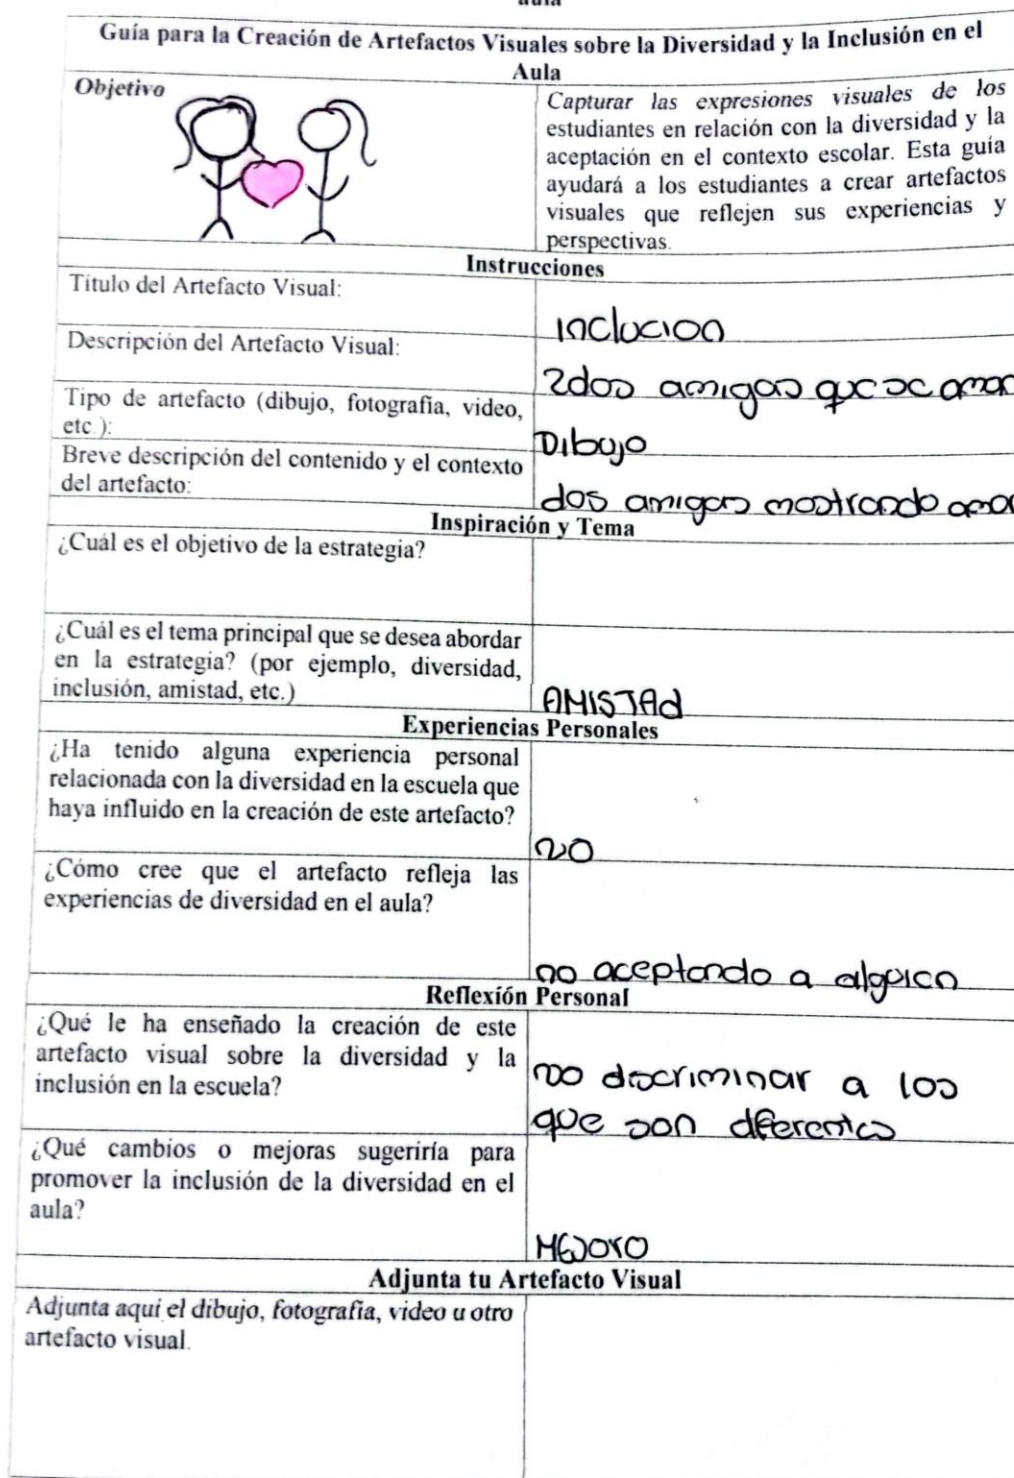 aula
Guía para la Creación de Artefactos Visuales sobre la Diversidad y la Inclusión en el
Aula
Objetivo
Capturar las expresiones visuales de los
estudiantes en relación con la diversidad y la
aceptación en el contexto escolar. Esta guía
ayudará a los estudiantes a crear artefactos
visuales que reflejen sus experiencias y
perspectivas.
Instrucciones
Título del Artefacto Visual:
Inclucion
Descripción del Artefacto Visual:
2dos amigas que se aman
Tipo de artefacto (dibujo, fotografía, video,
etc.):
Dibujo
Breve descripción del contenido y el contexto
del artefacto:
dos amigas mostrando amor
Inspiración y Tema
¿Cuál es el objetivo de la estrategia?
¿Cuál es el tema principal que se desea abordar
en la estrategia? (por ejemplo, diversidad,
inclusión, amistad, etc.)
AMISTAd
Experiencias Personales
¿Ha tenido alguna experiencia personal
relacionada con la diversidad en la escuela que
haya influido en la creación de este artefacto?
NO
¿Cómo cree que el artefacto refleja las
experiencias de diversidad en el aula?
no aceptando a alguien
Reflexión Personal
¿Qué le ha enseñado la creación de este
artefacto visual sobre la diversidad y la
inclusión en la escuela?
no discriminar a los
que son diferentes
¿Qué cambios o mejoras sugeriría para
promover la inclusión de la diversidad en el
aula?
Adjunta tu Artefacto Visual
Adjunta aquí el dibujo, fotografía, video u otro
artefacto visual.